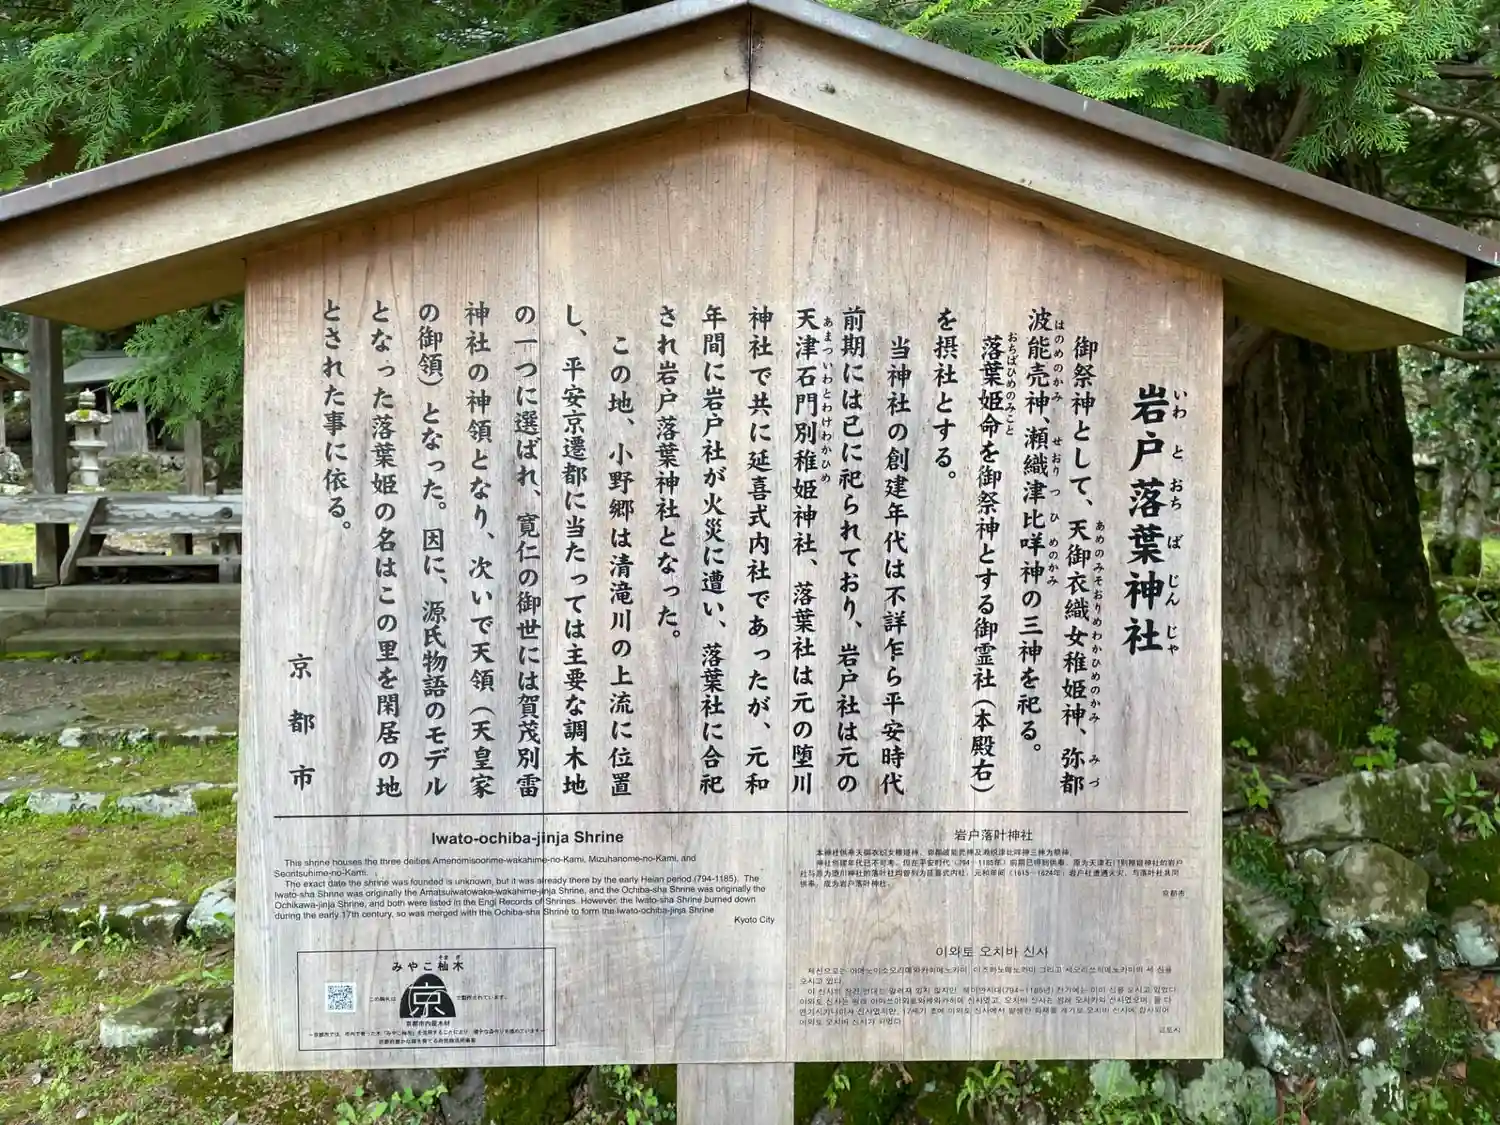 岩戸落葉神社
いわとおちばじんじゃ
御祭神として、天御衣織女稚姫神、弥都
あめのみそおりめわかひめのかみ みづ
波能売神、瀬織津比咩神の三神を祀る。
はのめのかみ せおりつひめのかみ
落葉姫命を御祭神とする御霊社(本殿右)
おちばひめのみこと
を摂社とする。
当神社の創建年代は不詳乍ら平安時代
前期には已に祀られており、岩戸社は元の
天津石門別稚姫神社、落葉社は元の堕川
あまついわとわけわかひめ
神社で共に延喜式内社であったが、元和
年間に岩戸社が火災に遭い、落葉社に合祀
され岩戸落葉神社となった。
この地、小野郷は清滝川の上流に位置
し、平安京遷都に当たっては主要な調木地
の一つに選ばれ、寛仁の御世には賀茂別雷
神社の神領となり、次いで天領(天皇家
の御領)となった。因に、源氏物語のモデル
となった落葉姫の名はこの里を閑居の地
とされた事に依る。
京都市
Iwato-ochiba-jinja Shrine
This shrine houses the three deities Amenomisoorime-wakahime-no-Kami, Mizuhanome-no-Kami, and
Seoritsuhime-no-Kami.
The exact date the shrine was founded is unknown, but it was already there by the early Heian period (794-1185). The
Iwato-sha Shrine was originally the Amatsuiwatowake-wakahime-jinja Shrine, and the Ochiba-sha Shrine was originally the
Ochikawa-jinja Shrine, and both were listed in the Engi Records of Shrines. However, the Iwato-sha Shrine burned down
during the early 17th century, so was merged with the Ochiba-sha Shrine to form the Iwato-ochiba-jinja Shrine
Kyoto City
岩户落叶神社
京都市
이와토 오치바 신사
교토시
みやこ杣木
そまぎ
この駒札は
京
で製作されています。
京都市内産木材